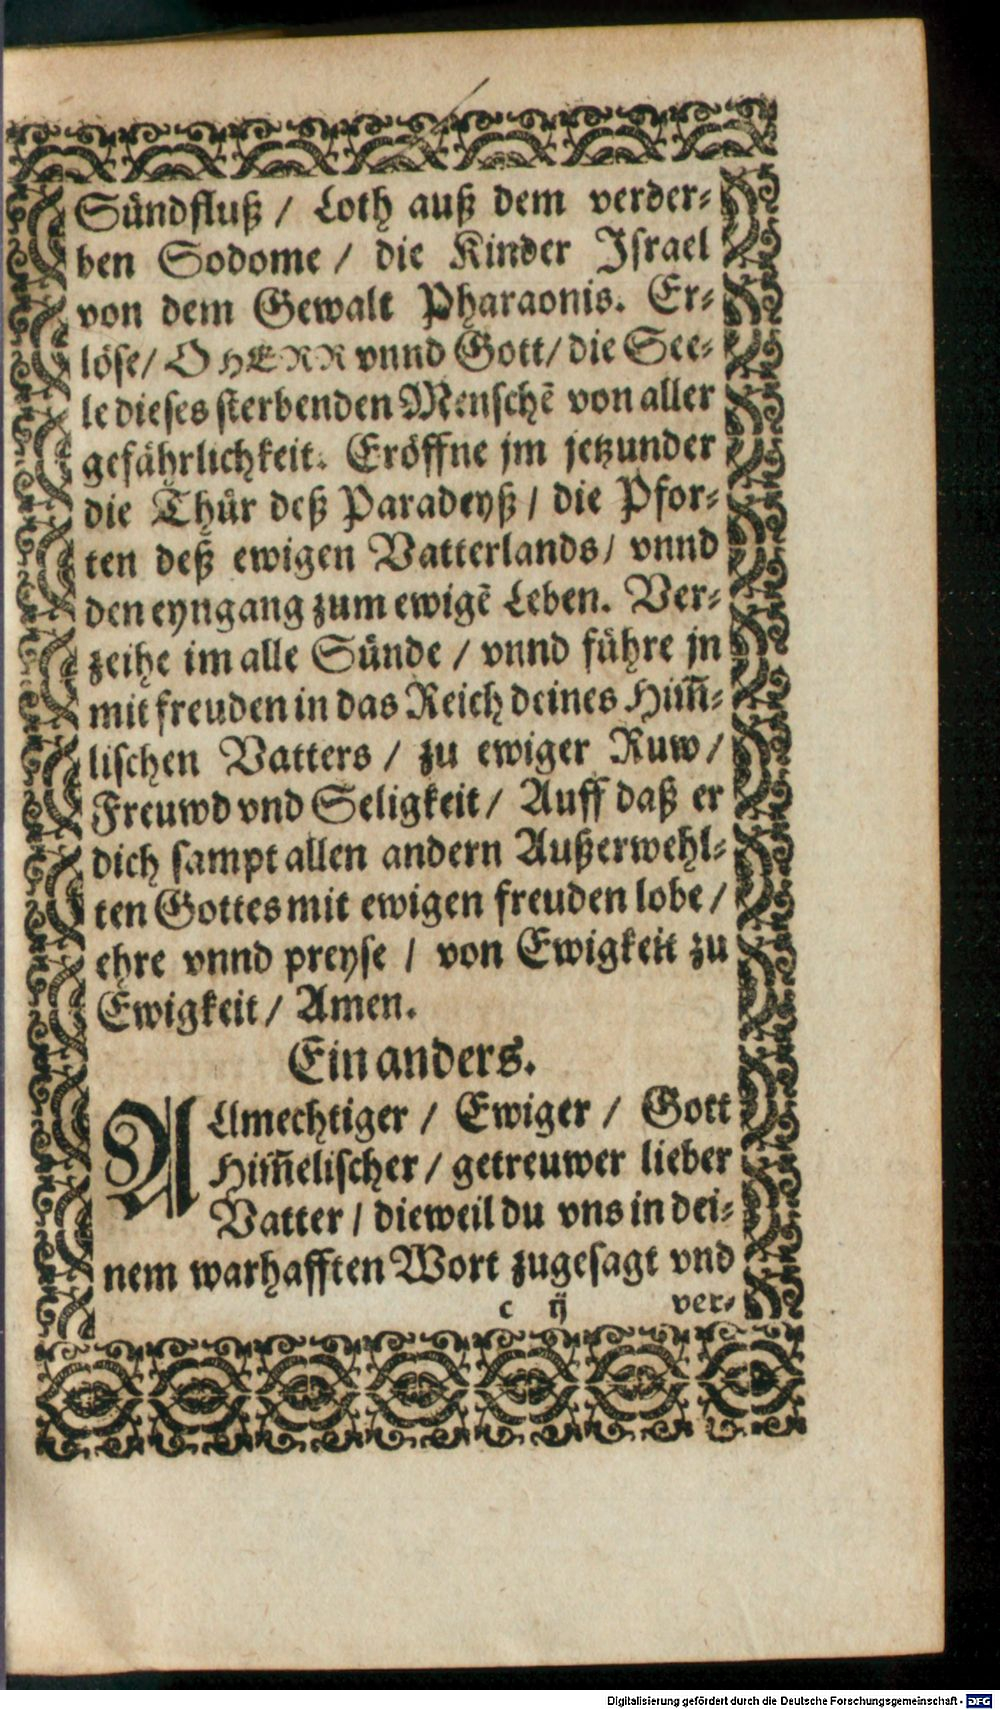 Sündfluß / Loth auß dem verder-
ben Sodome / die Kinder Israel
von dem Gewalt Pharaonis. Er-
löse / O HERR vnnd Gott / die See-
le dieses sterbenden Menschē von aller
gefährlichkeit. Eröffne jm jetzunder
die Thür deß Paradeyß / die Pfor-
ten deß ewigen Vatterlands / vnnd
den eyngang zum ewigē Leben. Ver-
zeihe im alle Sünde / vnnd führe jn
mit freuden in das Reich deines Him̃-
lischen Vatters / zu ewiger Ruw /
Freuwd vnd Seligkeit / Auff daß er
dich sampt allen andern Außerwehl-
ten Gottes mit ewigen freuden lobe /
ehre vnnd preyse / von Ewigkeit zu
Ewigkeit / Amen.
Ein anders.
ALlmechtiger / Ewiger / Gott
Him̃elischer / getreuwer lieber
Vatter / dieweil du vns in dei-
nem warhafften Wort zugesagt vnd
c ij ver-
Digitalisierung gefördert durch die Deutsche Forschungsgemeinschaft - DFG